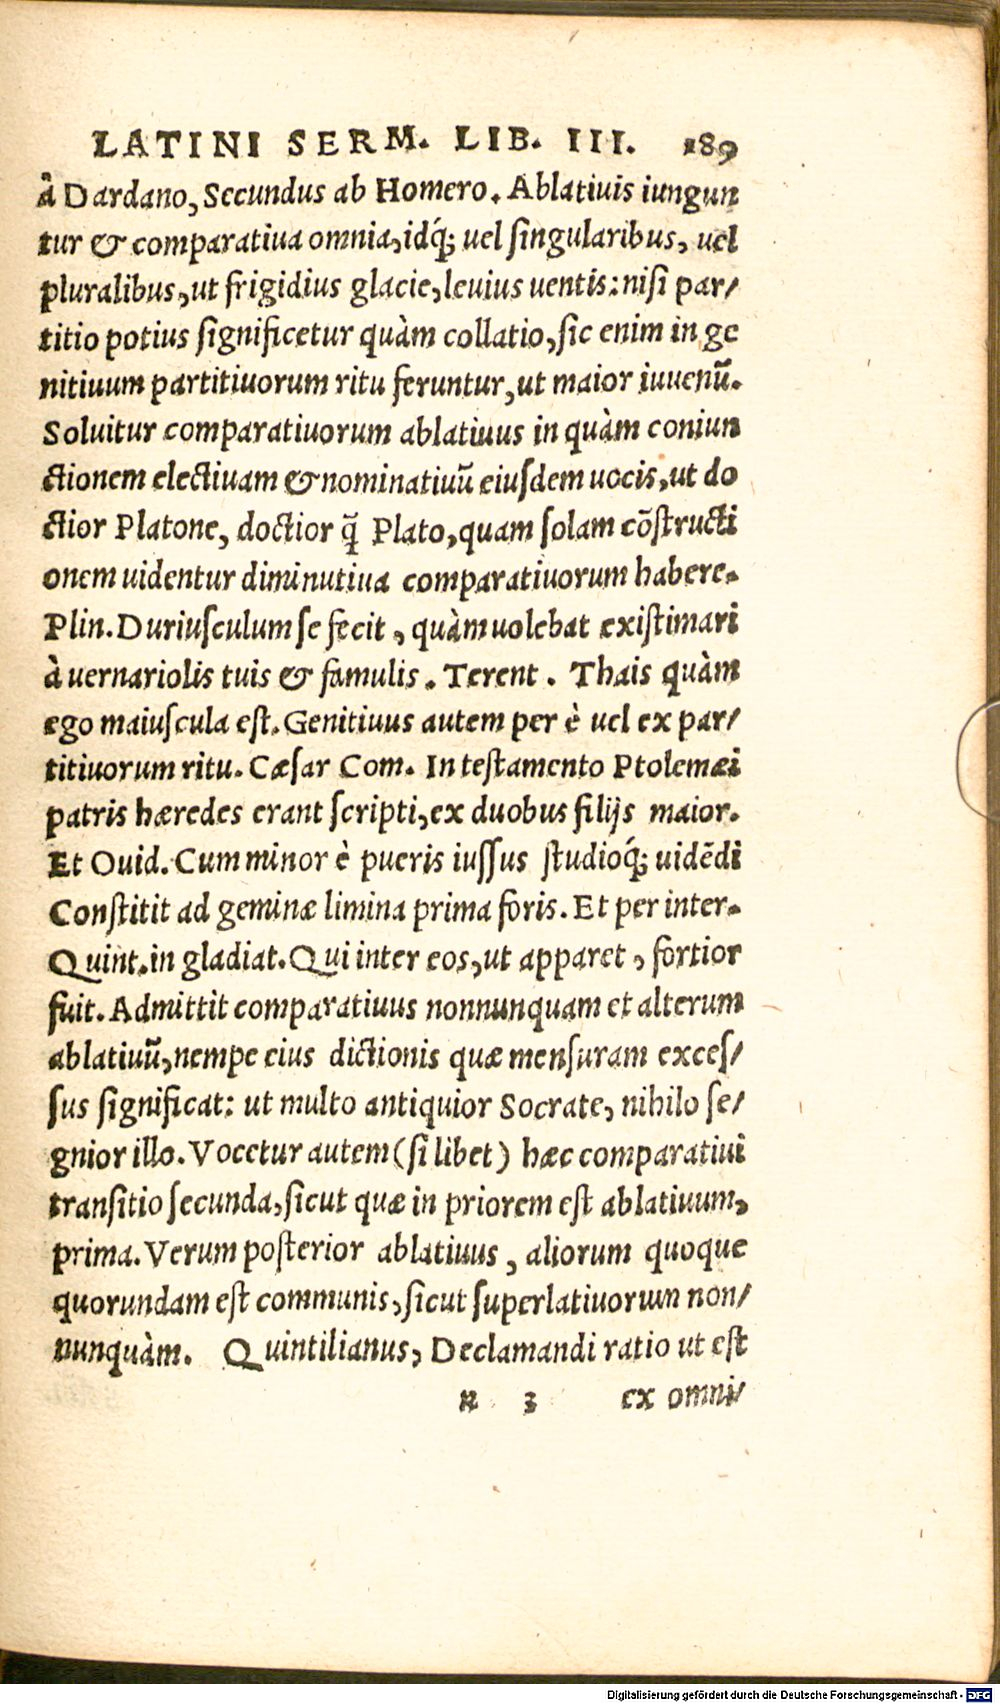 LATINI SERM. LIB. III. 189
â Dardano, Secundus ab Homero. Ablatiuis iungun
tur & comparatiua omnia, idq́; uel singularibus, uel
pluralibus, ut frigidius glacie, leuius uentis: nisi par/
titio potius significetur quàm collatio, sic enim in ge
nitiuum partitiuorum ritu feruntur, ut maior iuuenū.
Soluitur comparatiuorum ablatiuus in quàm coniun
ctionem electiuam & nominatiuū eiusdem uocis, ut do
ctior Platone, doctior q̃ Plato, quam solam cōstructi
onem uidentur diminutiua comparatiuorum habere.
Plin. Duriusculum se fecit, quàm uolebat existimari
à uernariolis tuis & famulis. Terent. Thais quàm
ego maiuscula est. Genitiuus autem per è uel ex par/
titiuorum ritu. Cæsar Com. In testamento Ptolemæi
patris hæredes erant scripti, ex duobus filijs maior.
Et Ouid. Cum minor è pueris iussus studioq́; uidēdi
Constitit ad geminæ limina prima foris. Et per inter.
Quint. in gladiat. Qui inter eos, ut apparet, fortior
fuit. Admittit comparatiuus nonnunquam et alterum
ablatiuū, nempe eius dictionis quæ mensuram exces/
sus significat: ut multo antiquior Socrate, nihilo se/
gnior illo. Vocetur autem (si libet) hæc comparatiui
transitio secunda, sicut quæ in priorem est ablatiuum,
prima. Verum posterior ablatiuus, aliorum quoque
quorundam est communis, sicut superlatiuorum non/
nunquàm. Quintilianus, Declamandi ratio ut est
n 3 ex omni/
Digitalisierung gefördert durch die Deutsche Forschungsgemeinschaft - DFG